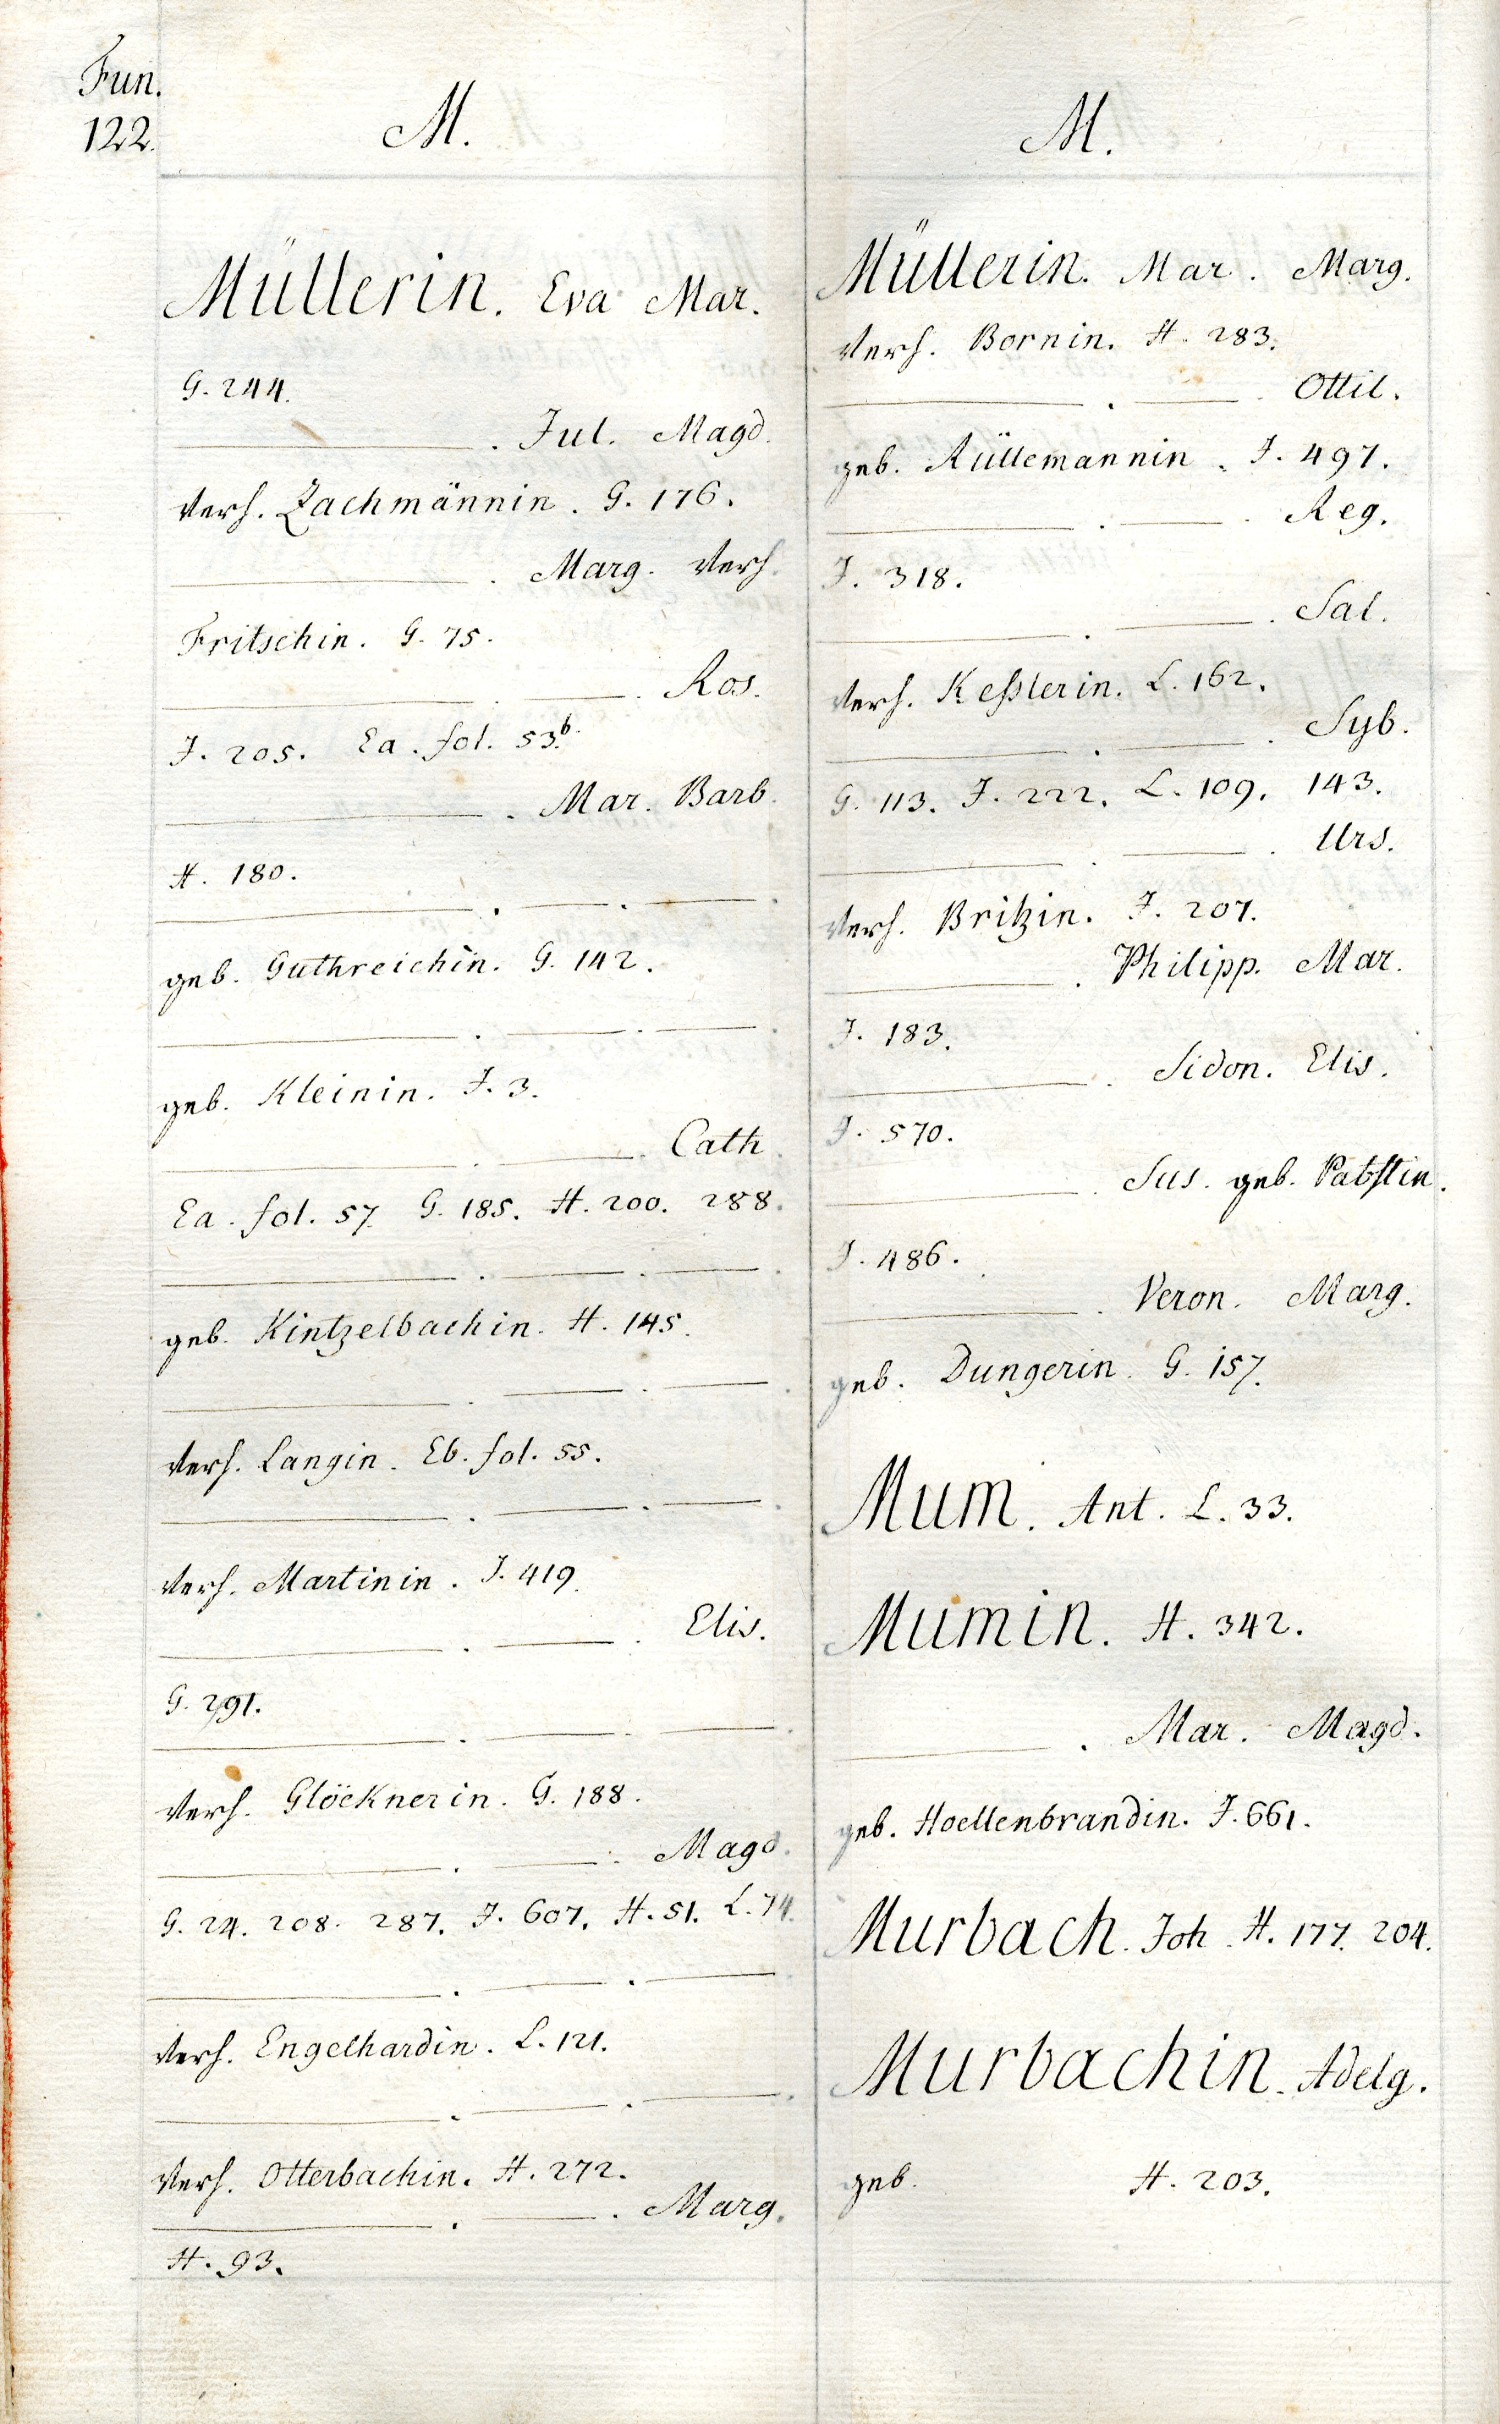 Fun.
122.
M.
Müllerin. Eva Mar.
G. 244.
———. Jul. Magd.
verh. Zachmännin. G. 176.
———. Marg. verh.
Fritschin. G. 75.
———. ———. Ros.
J. 205. Ea. fol. 53.b
———. Mar. Barb.
H. 180.
———. ———. ———.
geb. Guthreichin. G. 142.
———. ———. ———.
geb. Kleinin. J. 3.
———. ———. Cath.
Ea. fol. 57. G. 185. H. 200. 288.
———. ———. ———.
geb. Kintzelbachin. H. 145.
———. ———. ———.
verh. Langin. Eb. fol. 55.
———. ———. ———.
verh. Martinin. J. 419.
———. ———. Elis.
G. 291.
———. ———. ———.
verh. Glöcknerin. G. 188.
———. ———. Magd.
G. 24. 208. 287. J. 607. H. 51. L. 74.
———. ———. ———.
verh. Engelhardin. L. 121.
———. ———. ———.
verh. Otterbachin. H. 272.
———. ———. Marg.
H. 93.
M.
Müllerin. Mar. Marg.
verh. Bornin. H. 283.
———. ———. Ottil.
geb. Rüllemannin. J. 497.
———. ———. Reg.
J. 318.
———. ———. Sal.
verh. Keßlerin. L. 162.
———. ———. Syb.
G. 113. J. 222. L. 109. 143.
———. ———. Urs.
verh. Britzin. J. 207.
———. Philipp. Mar.
J. 183.
———. Sidon. Elis.
J. 570.
———. Sus. geb. Pabstin.
J. 486.
———. Veron. Marg.
geb. Dungerin. G. 157.
Mum. Ant. L. 33.
Mumin. H. 342.
———. Mar. Magd.
geb. Hoellenbrandin. J. 661.
Murbach. Joh. H. 177. 204.
Murbachin. Adelg.
geb. H. 203.